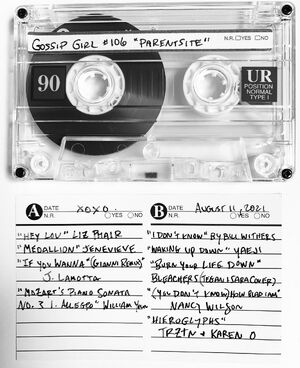 GOSSIP GIRL #106 "PARENTSITE"
N.R. YES NO
90
UR
POSITION
NORMAL
TYPE I
A DATE XOXO.
N.R. YES NO
"HEY LOU" LIZ PHAIR
"MEDALLION" JENEVIEVE
"IF YOU WANNA" (GIANNI REMIX)
J. LAMOTTA
"MOZART'S PIANO SONATA
NO. 3 1. ALLEGRO" WILLIAM YOUN
B DATE AUGUST 11, 2021
N.R. YES NO
"I DON'T KNOW" BY BILL WITHERS
"WAKING UP DOWN" YAEJI
"BURN YOUR LIFE DOWN"
BLEACHERS (TEGAN & SARA COVER)
"(YOU DON'T KNOW) HOW GLAD I AM"
NANCY WILSON
"HIEROGLYPHS"
TRZTN & KAREN O